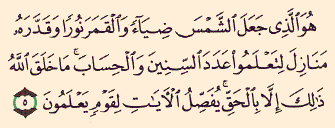 هُوَ ٱلَّذِي جَعَلَ ٱلشَّمْسَ ضِيَآءٗ وَٱلْقَمَرَ نُورٗا وَقَدَّرَهُۥ
مَنَازِلَ لِتَعْلَمُوا۟ عَدَدَ ٱلسِّنِينَ وَٱلْحِسَابَۚ مَا خَلَقَ ٱللَّهُ
ذَٰلِكَ إِلَّا بِٱلْحَقِّۚ يُفَصِّلُ ٱلْأٓيَٰتِ لِقَوْمٖ يَعْلَمُونَ ٥